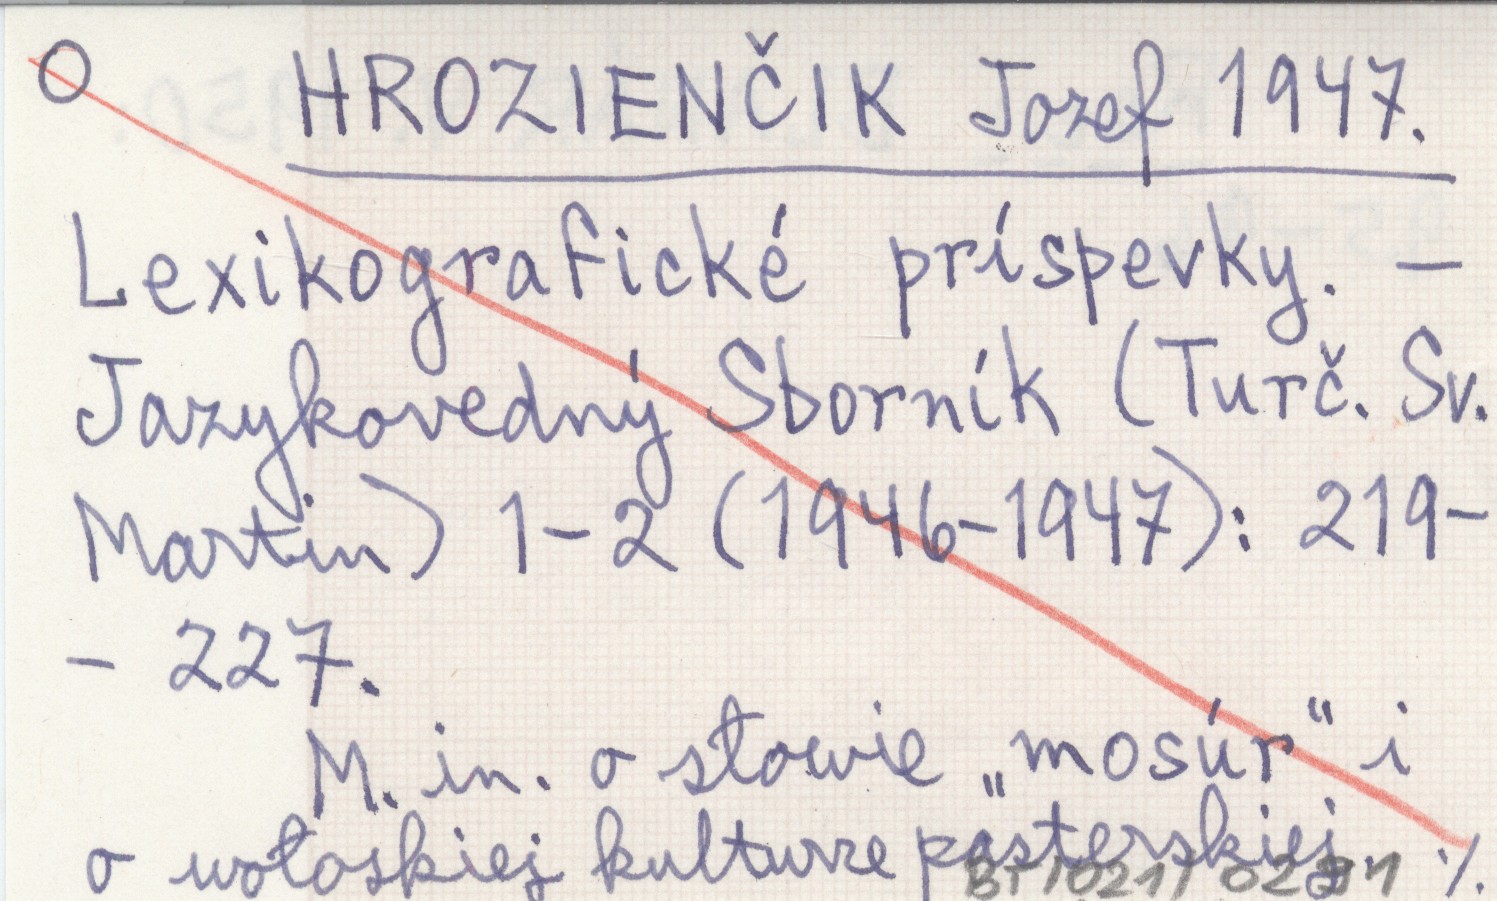 O HROZIENČIK Jozef 1947.
Lexikografické príspevky. –
Jazykovedný Sborník (Turč. Sv.
Martin) 1–2 (1946–1947): 219–
– 227.
M. in. o słowie „mosúr" i
o wołoskiej kulturze pasterskiej. ./.